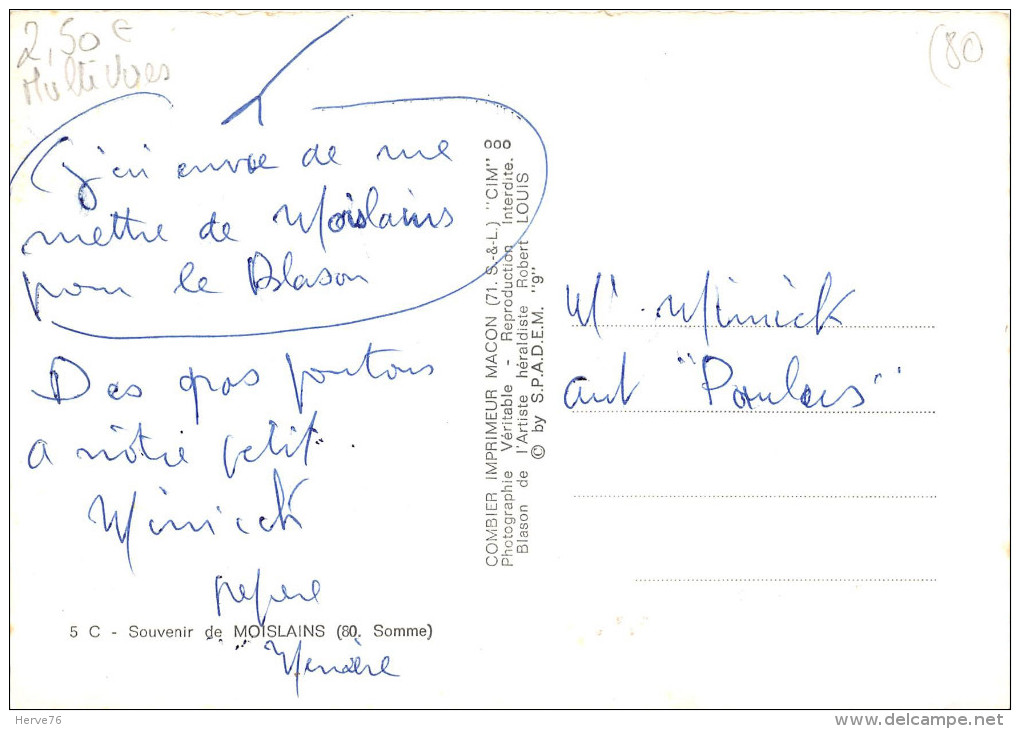 2,50 €
Multivues
(80
J'ai envie de me
mettre de Moislains
pour le Blason
Des gros poutous
a nôtre petit
Minick
pepere
Memère
5 C - Souvenir de MOISLAINS (80. Somme)
COMBIER IMPRIMEUR MACON (71. S.-&-L.) "CIM"
Photographie Véritable - Reproduction Interdite.
Blason de l'Artiste héraldiste Robert LOUIS
© by S.P.A.D.E.M. "9"
Mr Minick
dit "Poulou"
Herve76
delcampe.net